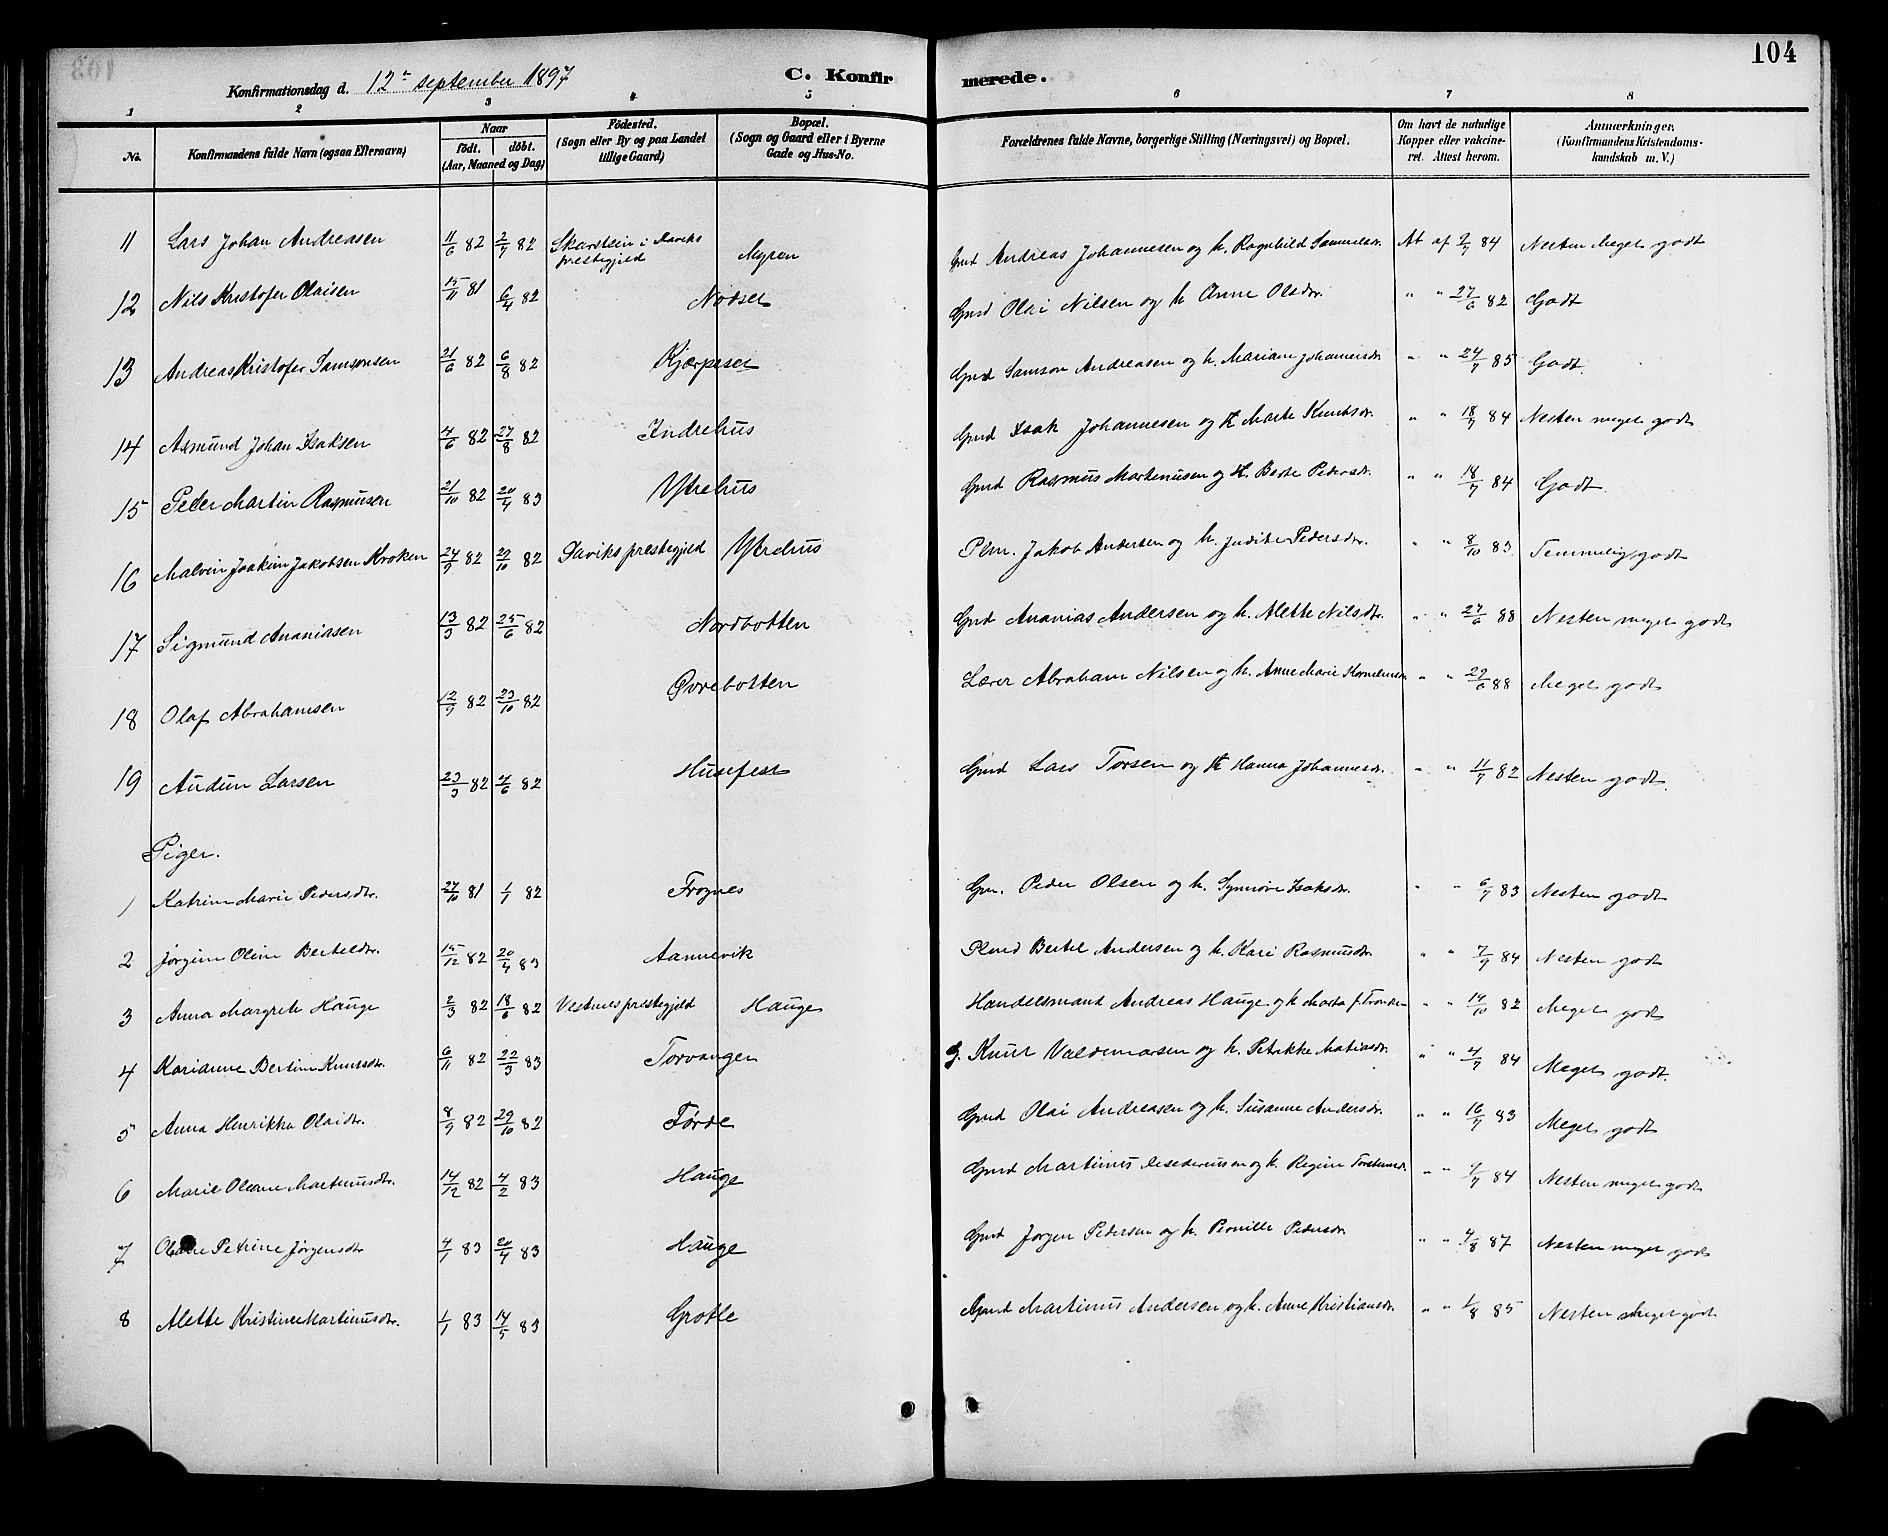 104
Konfirmationsdag d. 12te september 1897 C. Konfirmerede.
1 2 3 4 5 6 7 8
No. Konfirmandens fulde Navn (ogsaa Efternavn) Naar födt. döbt. (Aar, Maaned og Dag) Födested. (Sogn eller By og paa Landet tillige Gaard) Bopæl. (Sogn og Gaard eller i Byerne Gade og Hus-No. Forældrenes fulde Navne, borgerlige Stilling (Næringsvei) og Bopæl. Om havt de naturlige Kopper eller vakcineret. Attest herom. Anmærkninger. (Konfirmandens Kristendomskundskab m. V.)
11 Lars Johan Andreasen 11/6 82 2/7 82 Skarstein i Daviks prestegjeld Myren Gmd Andreas Johannesen og h. Ragnhild Samuelsdr. At af 9/7 84 Nesten Meget godt
12 Nils Kristofer Olaisen 15/11 81 6/4 82 Nodset Gmd Olai Nilsen og h Anne Olsdr. " " 27/6 82 Godt
13 Andreas Kristofer Samsonsen 21/6 82 6/8 82 Kjærpeset Gmd Samson Andreasen og h. Mariane Johannesdr " " 24/7 85 Godt.
14 Asmund Johan Isaksen 4/6 82 27/8 82 Indrehus Gmd Isak Johannesen og H Marte Knutsdr. " " 18/7 84 Nesten meget godt
15 Peder Martin Rasmusen 21/10 82 20/4 83 Ytrehus Gmd Rasmus Martinusen og H. Berte Pedersdr. " " 18/7 84 Godt.
16 Malvin Joakim Jakobsen Kroken 24/9 82 29/10 82 Daviks prestegjeld Ytrehus Plm. Jakob Andersen og h. Judite Pedersdr. " " 8/10 83 Temmelig godt
17 Sigmund Ananiasen 13/3 82 25/6 82 Nordbotten Gmd Ananias Andersen og h. Alette Nilsdr. " " 27/6 88 Nesten meget godt
18 Olaf Abrahamsen 12/9 82 23/10 82 Øvrebotten Lærer Abraham Nilsen og h. Anne Marie Kornelius " " 29/6 88 Meget godt
19 Audun Larsen 23/3 82 4/6 82 Husefest Gmd Lars Torsen og H Hanna Johannesdr. " " 11/7 82 Nesten godt.
Piger.
1 Katrine Marie Pedersdtr. 27/10 81 1/1 82 Frognes Gm. Peder Olsen og h. Synnøve Isaksdr. " " 6/7 83 Nesten godt
2 Jørgine Oline Berteldtr. 15/12 82 20/4 83 Aannevik Plmd Bertel Andersen og h. Kari Rasmusdr. " " 7/9 84 Nesten godt
3 Anna Margrete Hauge 2/3 82 18/6 82 Vestnes prestegjeld Hauge Handelsmand Andreas Hauge og h Marta f. " " 14/10 82 Meget godt
4 Karianne Bertine Knutsdtr. 6/11 82 22/3 83 Torvanger G. Knut Valdemarsen og h. Petrikke Matiasdr. " " 4/7 84 Meget godt.
5 Anna Henrikka Olaidtr. 8/9 82 29/10 82 Førde Gmd Olai Andreasen og h. Susanne Andersdr. " " 16/7 83 Meget godt
6 Marie Oleane Martinusdtr. 14/12 82 4/2 83 Hauge Gmd Martinus og h. Regine " " 4/7 84 Nesten meget godt
7 Petrine Jørgensdtr 4/1 83 20/4 83 Hauge Gmd Jørgen Pedersen og h. Pernille Pedersdr " " 4/8 87 Nesten meget godt
8 Alette Kristine Martinusdtr. 1/1 83 14/5 83 Grotle Gmd Martinus Andersen og h. Anne Kristiansdr. " " 1/8 85 Nesten meget godt